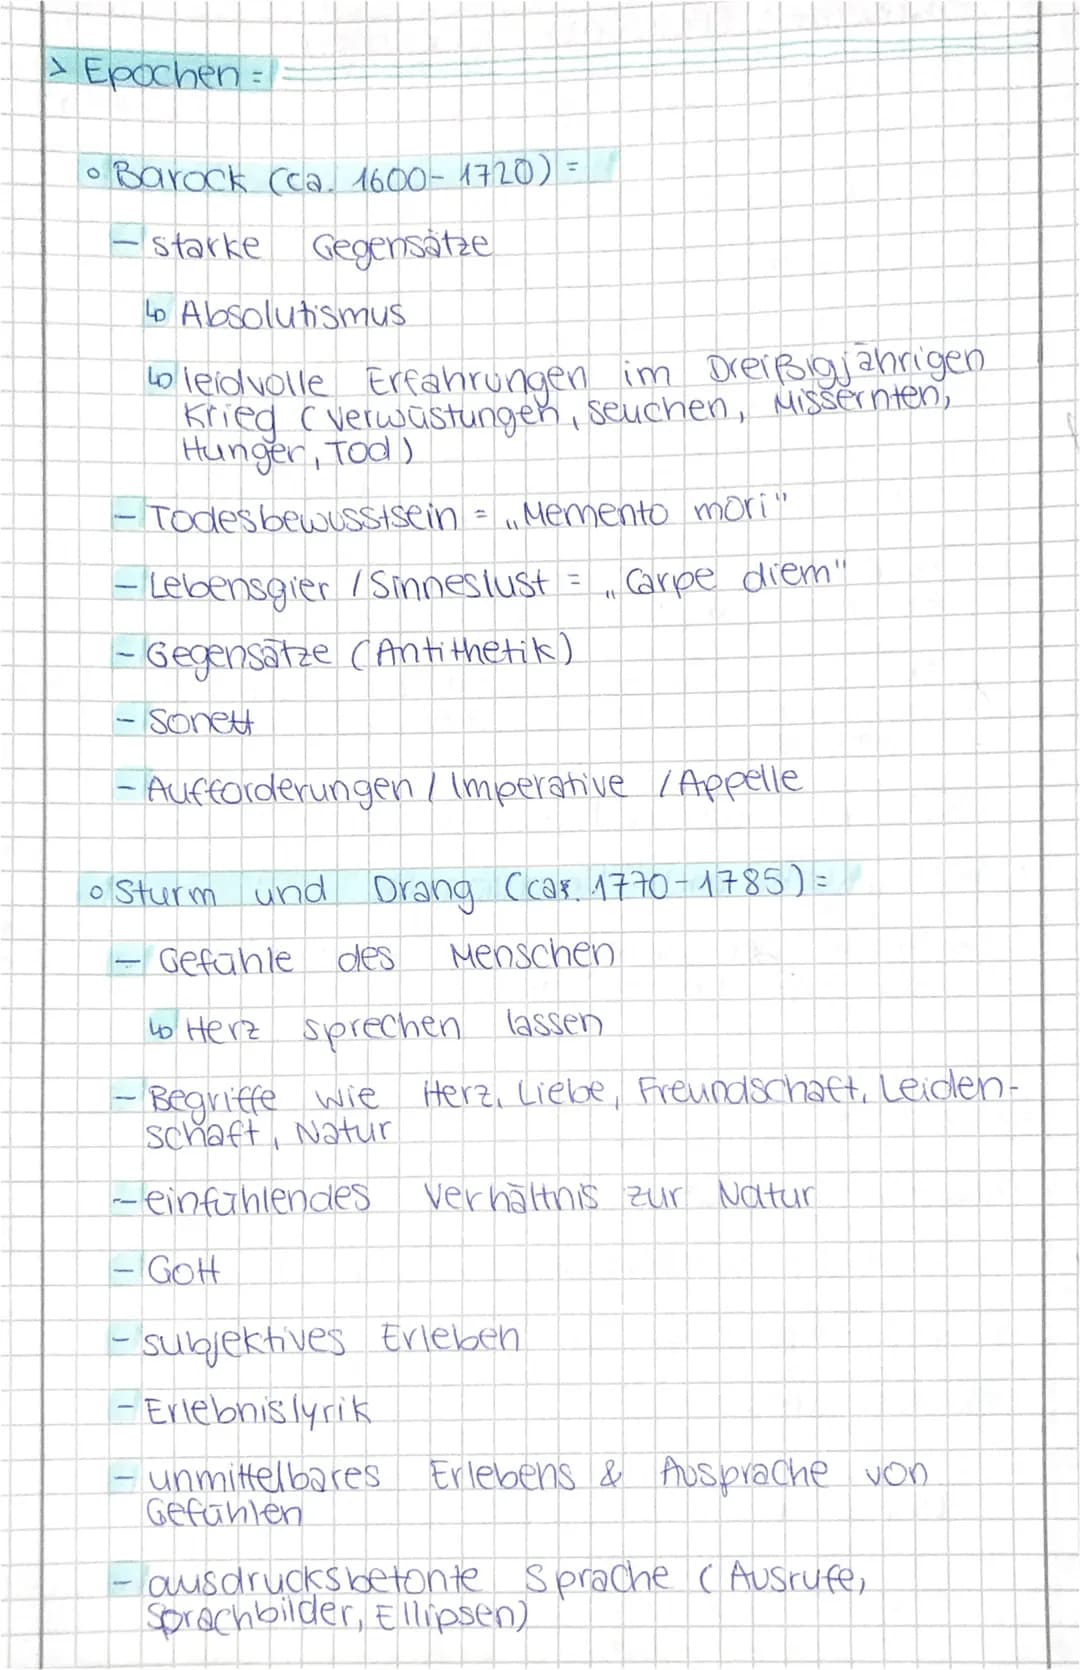 > Epochen =
° Barock (ca. 1600-1720) =
- starke Gegensätze
↳ Absolutismus
↳ leidvolle Erfahrungen im Dreißigjährigen
Krieg (Verwüstungen, Seuchen, Missernten,
Hunger, Tod)
- Todesbewusstsein = „Memento mori"
- Lebensgier / Sinneslust = „Carpe diem"
- Gegensätze (Antithetik)
- Sonett
- Aufforderungen / Imperative / Appelle
° Sturm und Drang (ca. 1770-1785) =
- Gefühle des Menschen
↳ Herz sprechen lassen
- Begriffe wie Herz, Liebe, Freundschaft, Leiden-
schaft, Natur
- einfühlendes Verhältnis zur Natur
- Gott
- subjektives Erleben
- Erlebnislyrik
- unmittelbares Erlebens & Aussprache von
Gefühlen
- ausdrucksbetonte Sprache (Ausrufe,
Sprachbilder, Ellipsen)